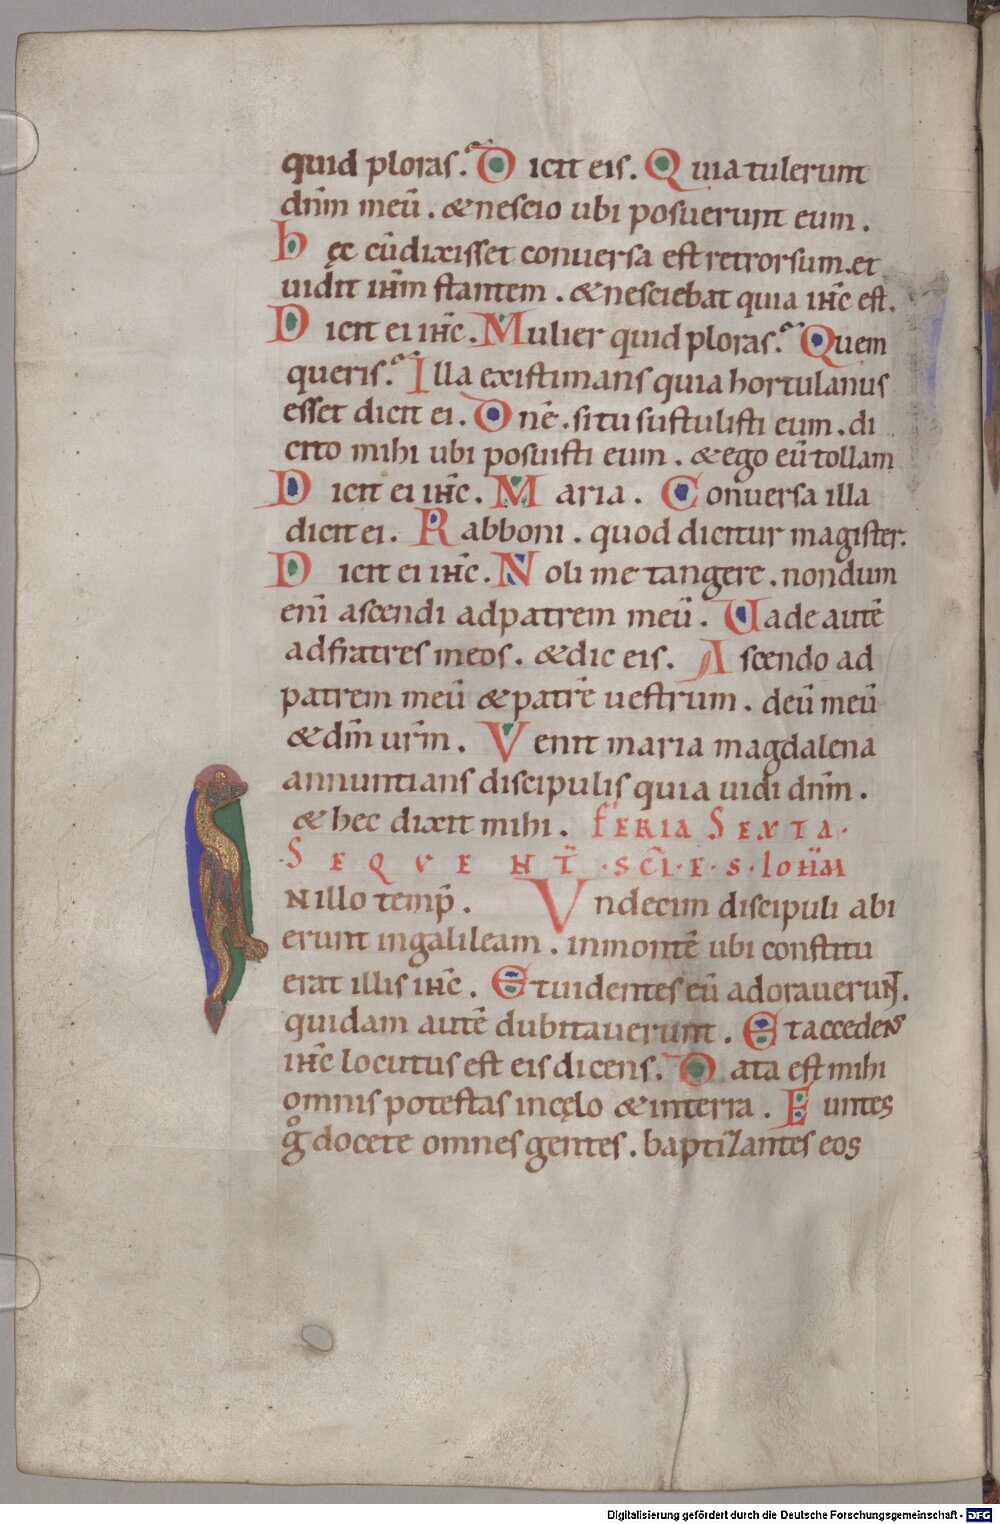 quid ploras. Dicit eis. Quia tulerunt
dnm̄ meū. & nescio ubi posuerunt eum.
hęc cū dixisset conuersa est retrorsum. et
uidit ihm̄ stantem. & nesciebat quia ihc̄ est.
Dicit ei ihc̄. Mulier quid ploras. Quem
queris. Illa existimans quia hortulanus
esset dicit ei. Dnē. si tu sustulisti eum. di
cito mihi ubi posuisti eum. & ego eū tollam
Dicit ei ihc̄. Maria. Conuersa illa
dicit ei. Rabboni. quod dicitur magister.
Dicit ei ihc̄. Noli me tangere. nondum
enī ascendi ad patrem meū. Uade autē
ad fratres meos. & dic eis. Ascendo ad
patrem meū & patrē uestrum. deū meū
& dm̄ urm̄. Venit maria magdalena
annuntians discipulis quia uidi dnm̄.
& hec dixit mihi. FERIA SEXTA.
SEQUENT̄. SCĪ. E. S. IOHAN
Nillo temp̄. Undecim discipuli abi
erunt in galileam. in montē ubi constitu
erat illis ihc̄. Et uidentes eū adorauerunt.
quidam autē dubitauerunt. Et accedens
ihc̄ locutus est eis dicens. Data est mihi
omnis potestas in cęlo & in terra. Euntes
gͦ docete omnes gentes. baptizantes eos
Digitalisierung gefördert durch die Deutsche Forschungsgemeinschaft - DFG